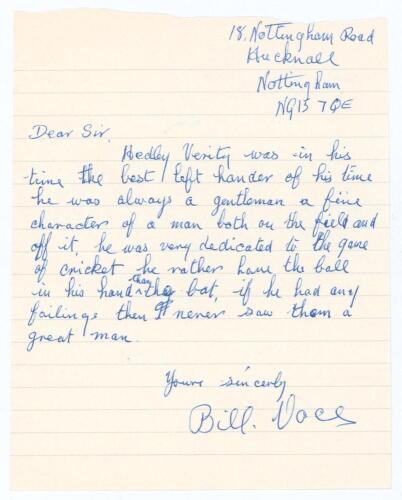 18, Nottingham Road
Hucknall
Nottingham
NG15 7QE
Dear Sir,
Hedley Verity was in his
time the best left hander of his time
he was always a gentleman a fine
character of a man both on the field and
off it, he was very dedicated to the game
of cricket he rather have the ball
in his hand than the bat, if he had any
failings then I never saw them a
great man.
Yours sincerly
Bill. Voce